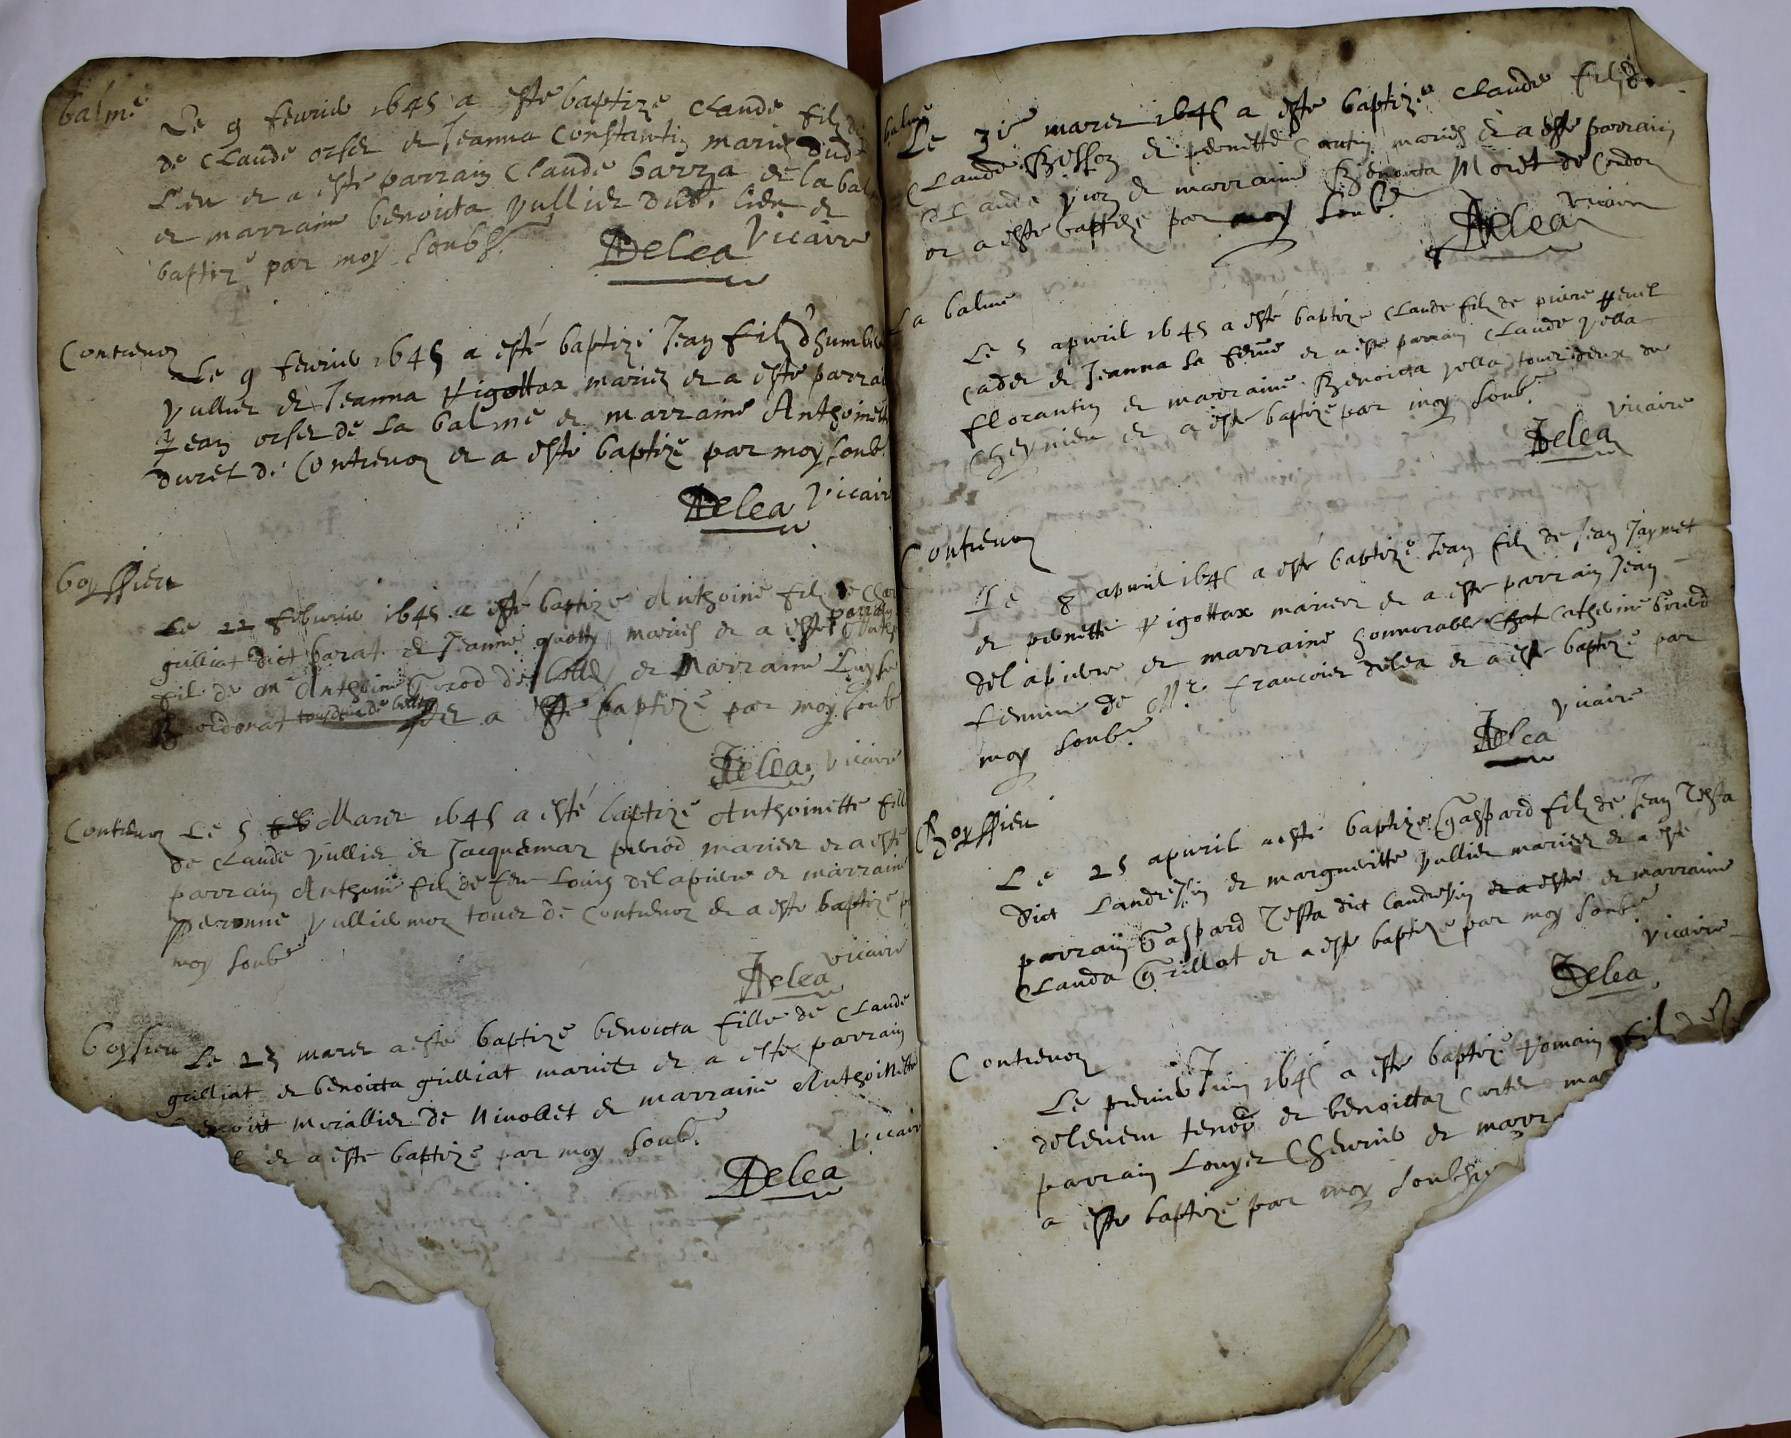 balme
Le 9 feuvrier 1645 a esté baptizé Claude filz
de Claude orset et Jeanna Constantin mariez dud
Lieu et a esté parrain Claude barra de la bal
et marraine benoicta vullier dict lieu et
baptizé par moy soubs.
Delea vicaire
Contrevoz
Le 9 feuvrier 1645 a esté baptizé Jean filz d'humb
vullier et Jeanna Rigottax mariez et a esté parrai
Jean orset de La balme et marraine Anthoinett
duret de Contrevoz et a esté baptizé par moy soub
Delea vicair
boyssieu
Le 22 feburier 1645 a esté baptizé Anthoine filz de
gulliat dict barat et Jeanne mariés et a esté parrain
filz de me Anthoine de et Marraine Luyse
tous deux de et a esté baptizé par moy soub
Delea vicaire
Contrevoz Le 5 Marez 1645 a esté baptizé Anthoinette fill
de Claude vullier et Jacquemaz perrod mariez et a esté
parrain Anthoine filz de feu Louis delapierre et marraine
Peronne vulliermoz touts de Contrevoz et a esté baptizé p
moy soubs
Delea vicaire
boyssieu Le 23 marez a esté baptizé benoicta fille de Claude
gulliat et benoicta gulliat mariez et a esté parrain
mirallier de Nivollet et marraine Anthoinette
et a esté baptizé par moy soub.
Delea vicair
balme
Le 31e marez 1645 a esté baptizé Claude filz
Claude Besson et pernette mariés et a esté parrain
Claude et marraine Benoicta Moret de Condon
et a esté baptizé par moy soub.
Delea vicaire
La balme
Le 5 apvril 1645 a esté baptizé Claude filz de pierre
cadet et Jeanna sa feme et a esté parrain Claude vella
florantin et marraine Benoicta vella touts deux de
Cheynieu et a esté baptizé par moy soub.
Delea vicaire
Contrevoz
Le 8 apvril 1645 a esté baptizé Jean filz de Jean Jaymet
et pernette Rigottax mariez et a esté parrain Jean
delapierre et marraine honnorable Catherine
femme de Mr. francois delea et a esté baptizé par
moy soubs.
Delea vicaire
Boyssieu
Le 25 apvril a esté baptizé Gaspard filz de Jean Testa
dict Landresin et margueritte vullier mariez et a esté
parrain Gaspard Testa dict Landresin et a esté et marraine
Clauda Grillot et a esté baptizé par moy soub.
Delea vicaire
Contrevoz
Le premier Juin 1645 a esté baptizé Romain filz
et benoictaz Cartet ma
parrain Louys Chevrier et marr
a esté baptizé par moy soubs